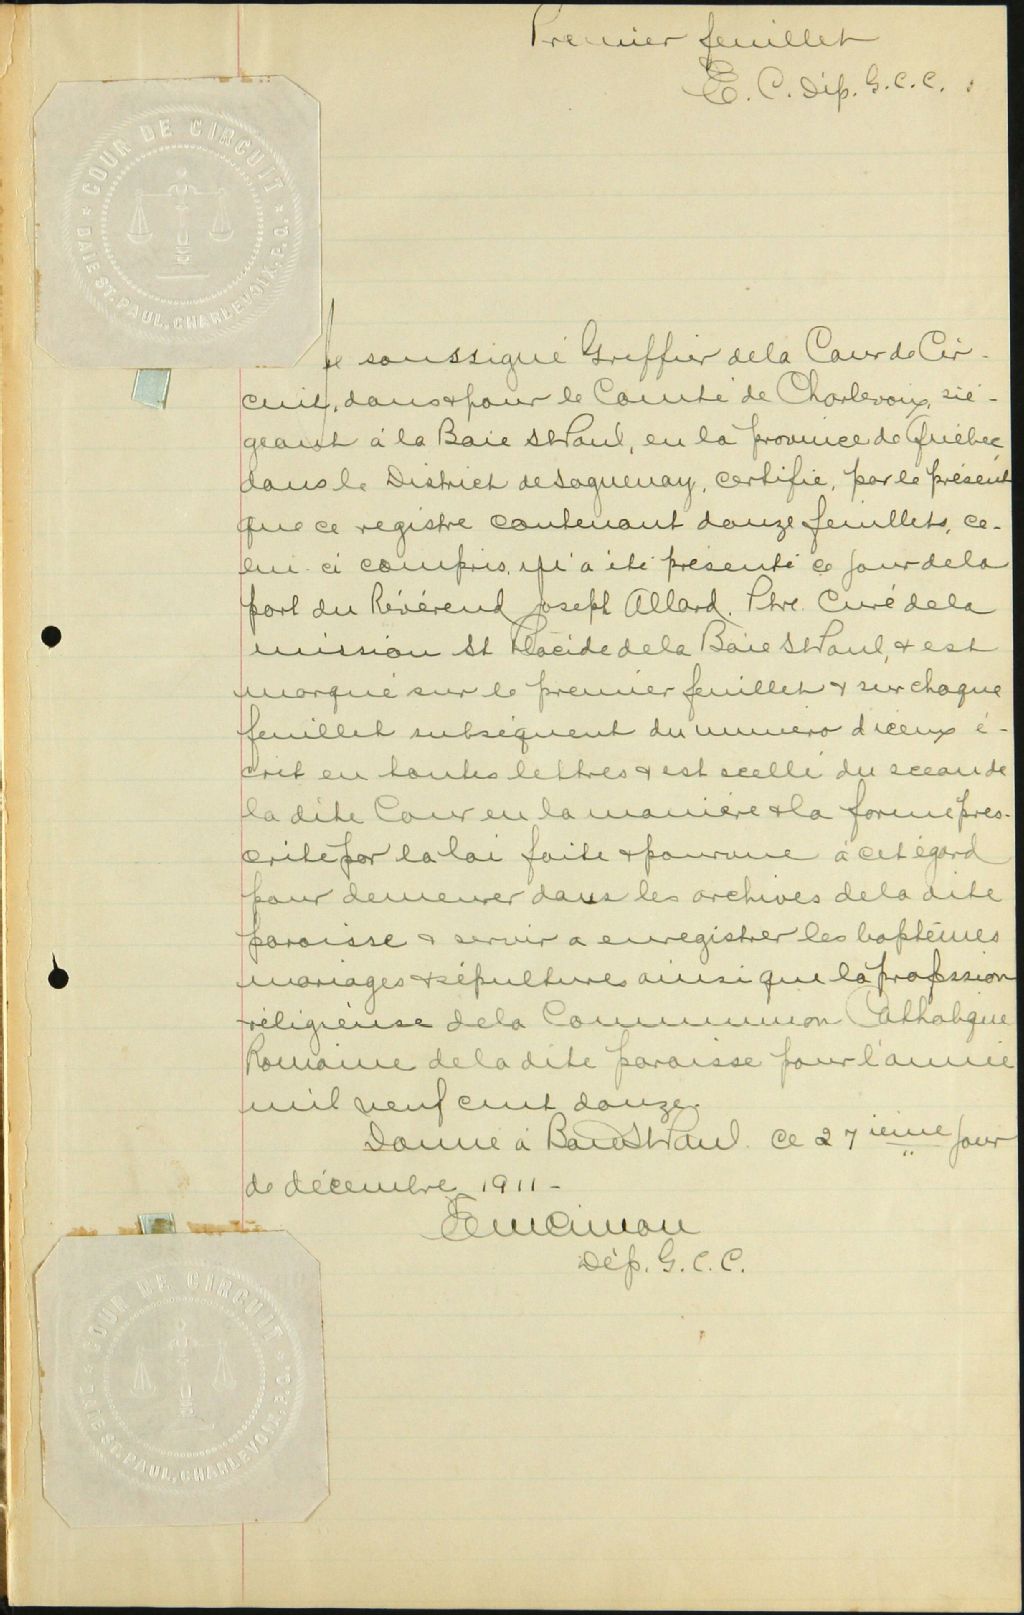 Premier feuillet
E. C. Dép. G. C. C.
COUR DE CIRCUIT
BAIE ST. PAUL, CHARLEVOIX, P. Q.
Je soussigné Greffier de la Cour de Cir-
cuit, dans & pour le Comté de Charlevoix, sié-
geant à la Baie St Paul, en la province de Québec
dans le District de Saguenay, certifie, par le présent
que ce registre contenant douze feuillets, ce-
lui ci compris, qui a été présenté ce jour de la
part du Révérend Joseph Allard, Ptre. Curé de la
mission St Placide de la Baie St Paul, & est
marqué sur le premier feuillet & sur chaque
feuillet subséquent du numéro d'iceux é-
crit en toutes lettres & est scellé du sceau de
la dite Cour en la manière & la forme pres-
crite par la loi faite & pourvue à cet égard
pour demeurer dans les archives de la dite
paroisse & servir a enregistrer les baptêmes
mariages & sépultures ainsi que la profession
réligieuse de la Communion Catholique
Romaine de la dite paroisse pour l'année
mil neuf cent douze.
Donné à Baie St Paul ce 27ième jour
de décembre 1911 -
Cimon
Dép. G. C. C.
COUR DE CIRCUIT
BAIE ST. PAUL, CHARLEVOIX, P. Q.